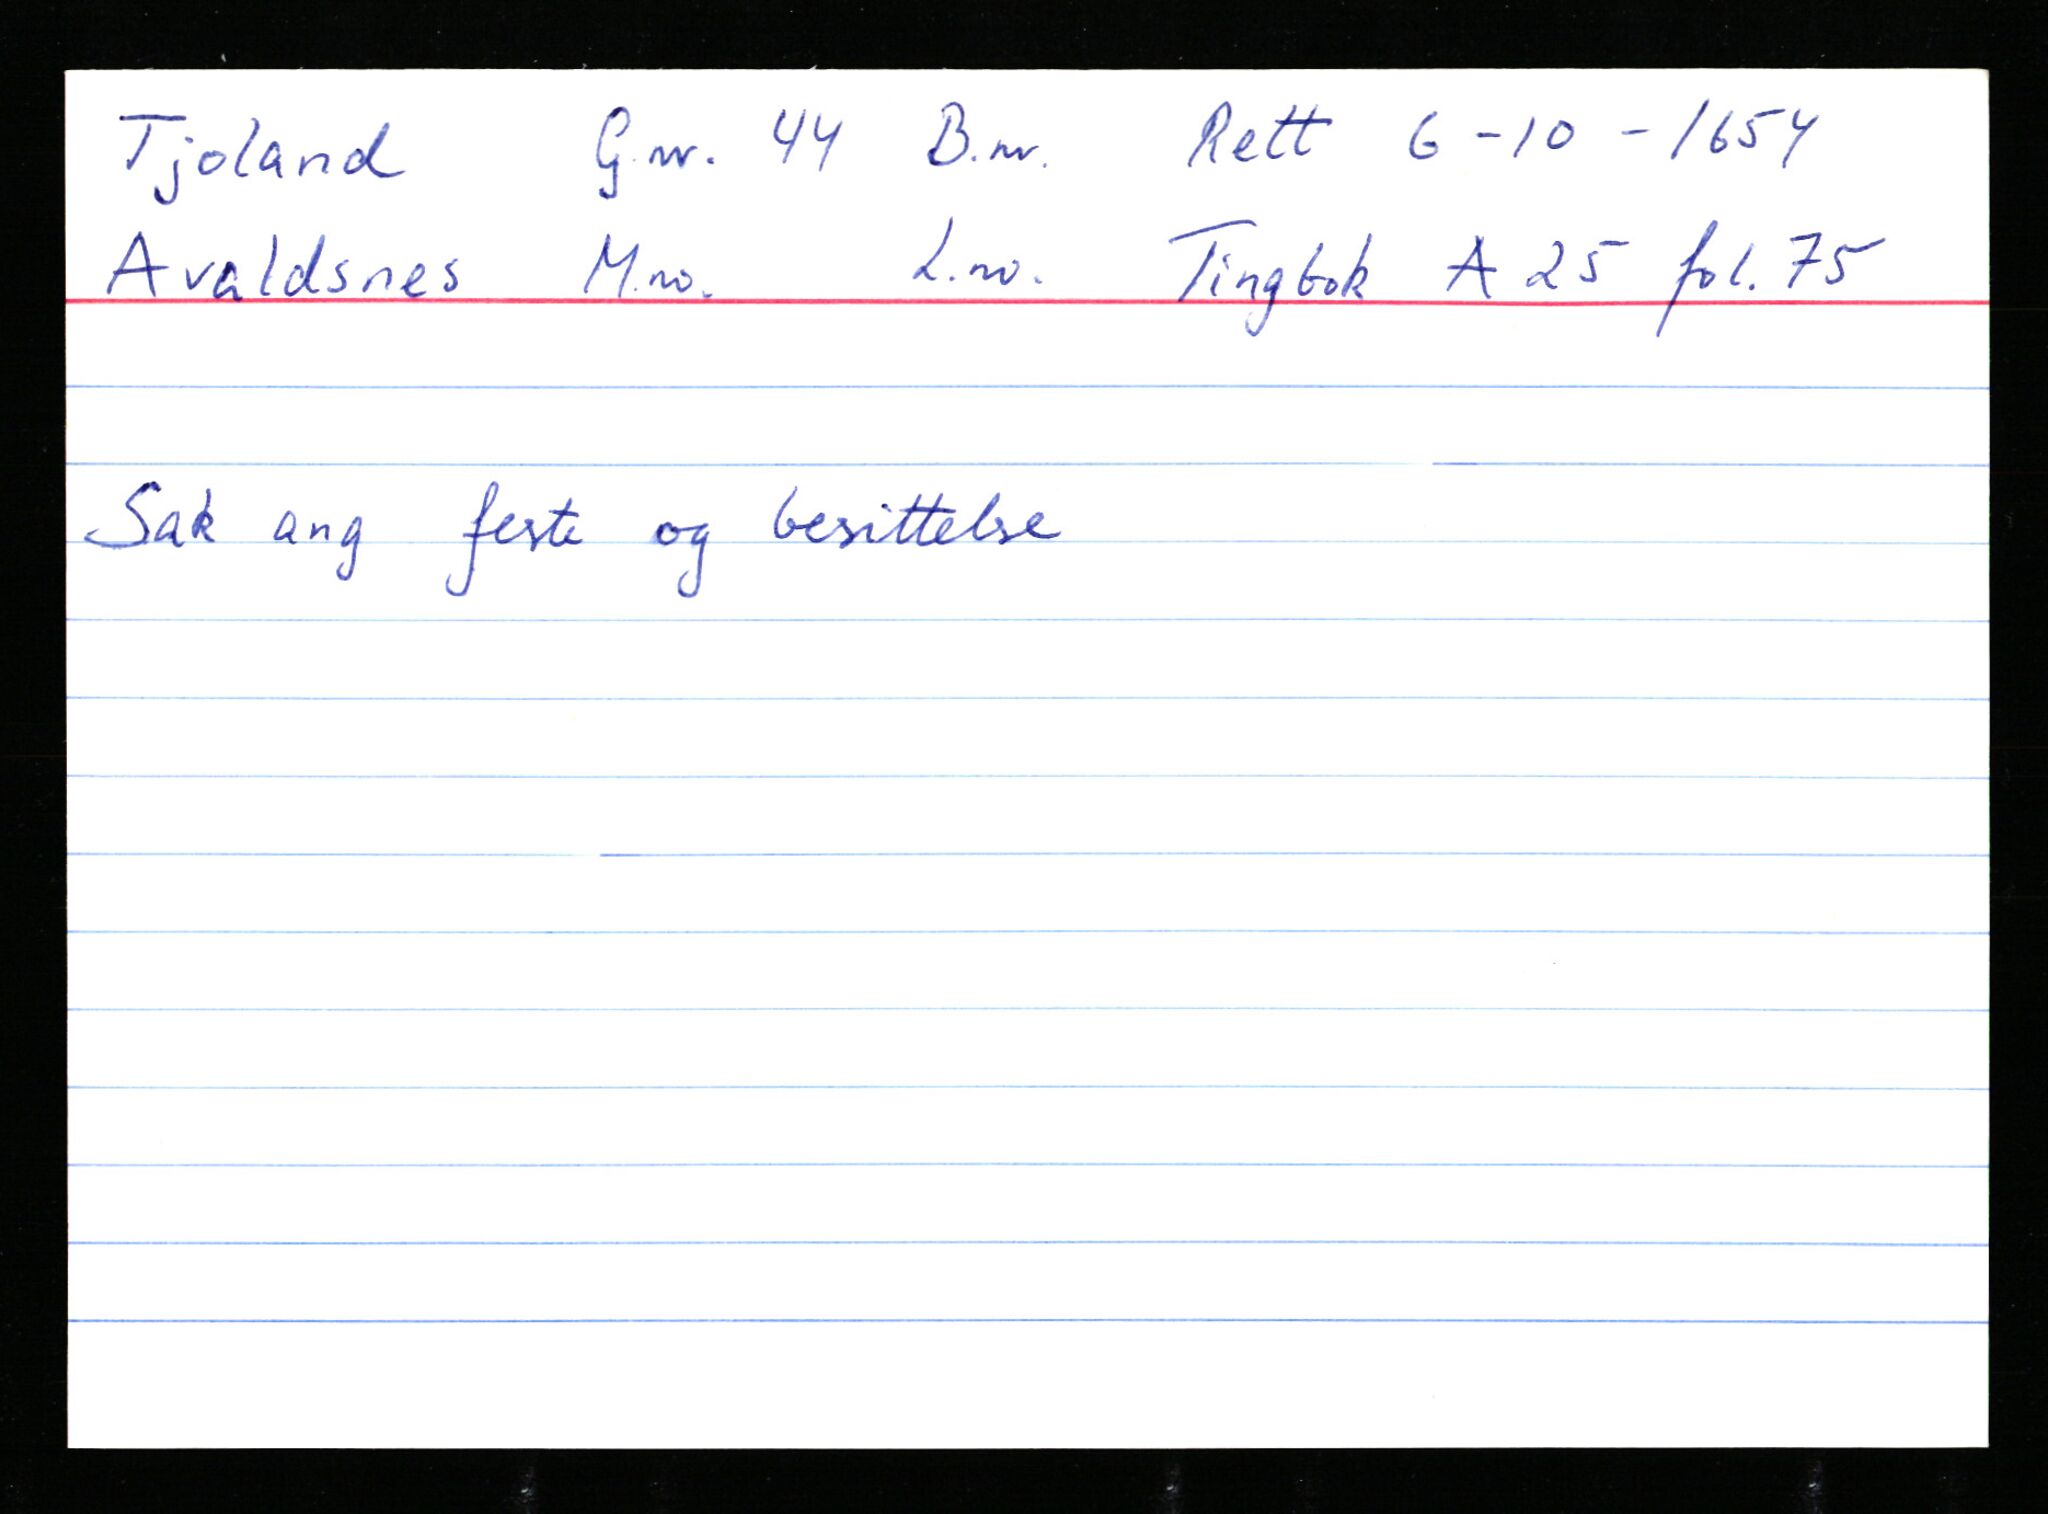 Tjoland G.nr. 44 B.nr. Rett 6-10-1654
Avaldsnes M.nr. L.nr. Tingbok A 25 fol. 75
Sak ang feste og besittelse